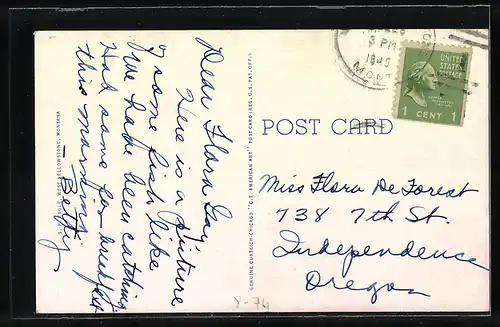 Dear Flora Gay,
Here is a picture
of some fish like
we have been catching.
Had some for breakfast
this morning.
— Betty
WEST YELLOWSTONE, MONTANA
GENUINE CURTEICH-CHICAGO "C.T. AMERICAN ART" POST CARD (REG. U.S. PAT. OFF.)
POST CARD
3 PM
MONT
UNITED
STATES
POSTAGE
1 CENT 1
Miss Flora De Forest
738 7th St.
Independence
Oregon
8-74